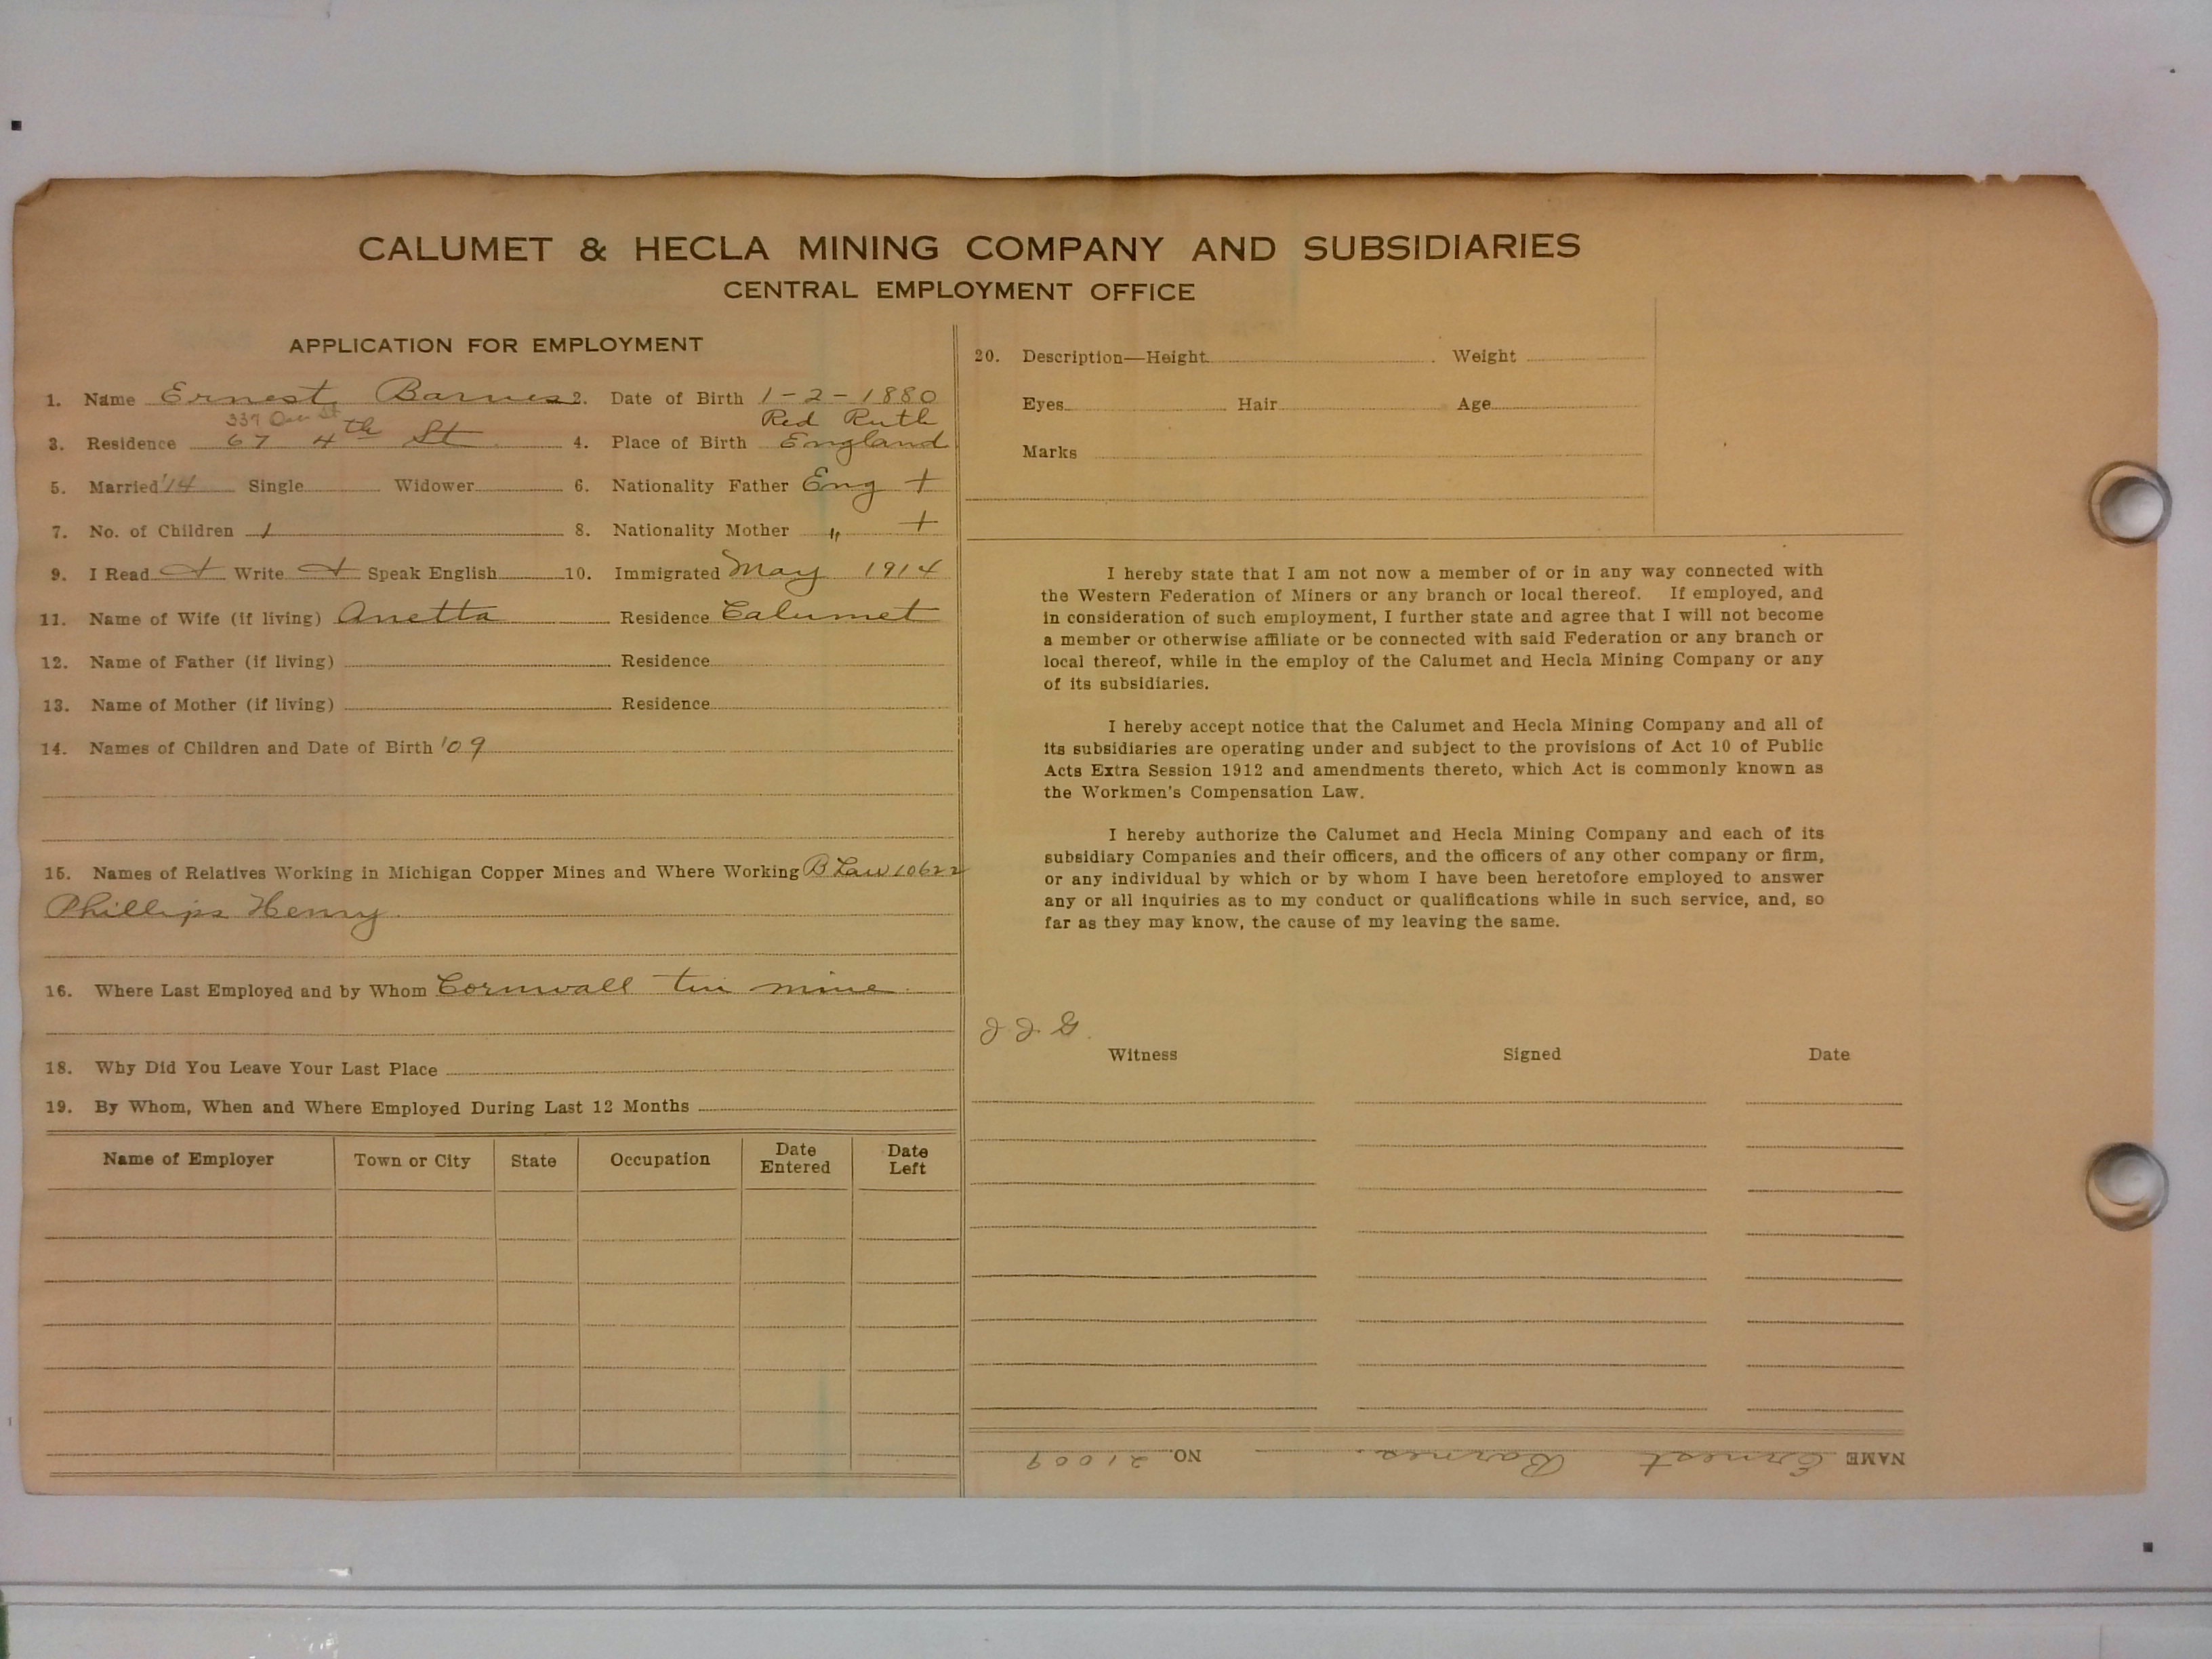 CALUMET & HECLA MINING COMPANY AND SUBSIDIARIES
CENTRAL EMPLOYMENT OFFICE
APPLICATION FOR EMPLOYMENT
1. Name Ernest Barnes 2. Date of Birth 1-2-1880
339 St
Red Ruth
3. Residence 67 4th St 4. Place of Birth England
5. Married '14 Single Widower 6. Nationality Father Eng +
7. No. of Children 1 8. Nationality Mother " +
9. I Read + Write + Speak English 10. Immigrated May 1914
11. Name of Wife (if living) Anetta Residence Calumet
12. Name of Father (if living) Residence
13. Name of Mother (if living) Residence
14. Names of Children and Date of Birth '09
15. Names of Relatives Working in Michigan Copper Mines and Where Working B Law 10622
Phillips Henry
16. Where Last Employed and by Whom Cornwall tin mine
18. Why Did You Leave Your Last Place
19. By Whom, When and Where Employed During Last 12 Months
Name of Employer Town or City State Occupation Date Entered Date Left
20. Description—Height Weight
Eyes Hair Age
Marks
I hereby state that I am not now a member of or in any way connected with
the Western Federation of Miners or any branch or local thereof. If employed, and
in consideration of such employment, I further state and agree that I will not become
a member or otherwise affiliate or be connected with said Federation or any branch or
local thereof, while in the employ of the Calumet and Hecla Mining Company or any
of its subsidiaries.
I hereby accept notice that the Calumet and Hecla Mining Company and all of
its subsidiaries are operating under and subject to the provisions of Act 10 of Public
Acts Extra Session 1912 and amendments thereto, which Act is commonly known as
the Workmen's Compensation Law.
I hereby authorize the Calumet and Hecla Mining Company and each of its
subsidiary Companies and their officers, and the officers of any other company or firm,
or any individual by which or by whom I have been heretofore employed to answer
any or all inquiries as to my conduct or qualifications while in such service, and, so
far as they may know, the cause of my leaving the same.
J. J. G.
Witness Signed Date
NAME Ernest Barnes. NO. 21009